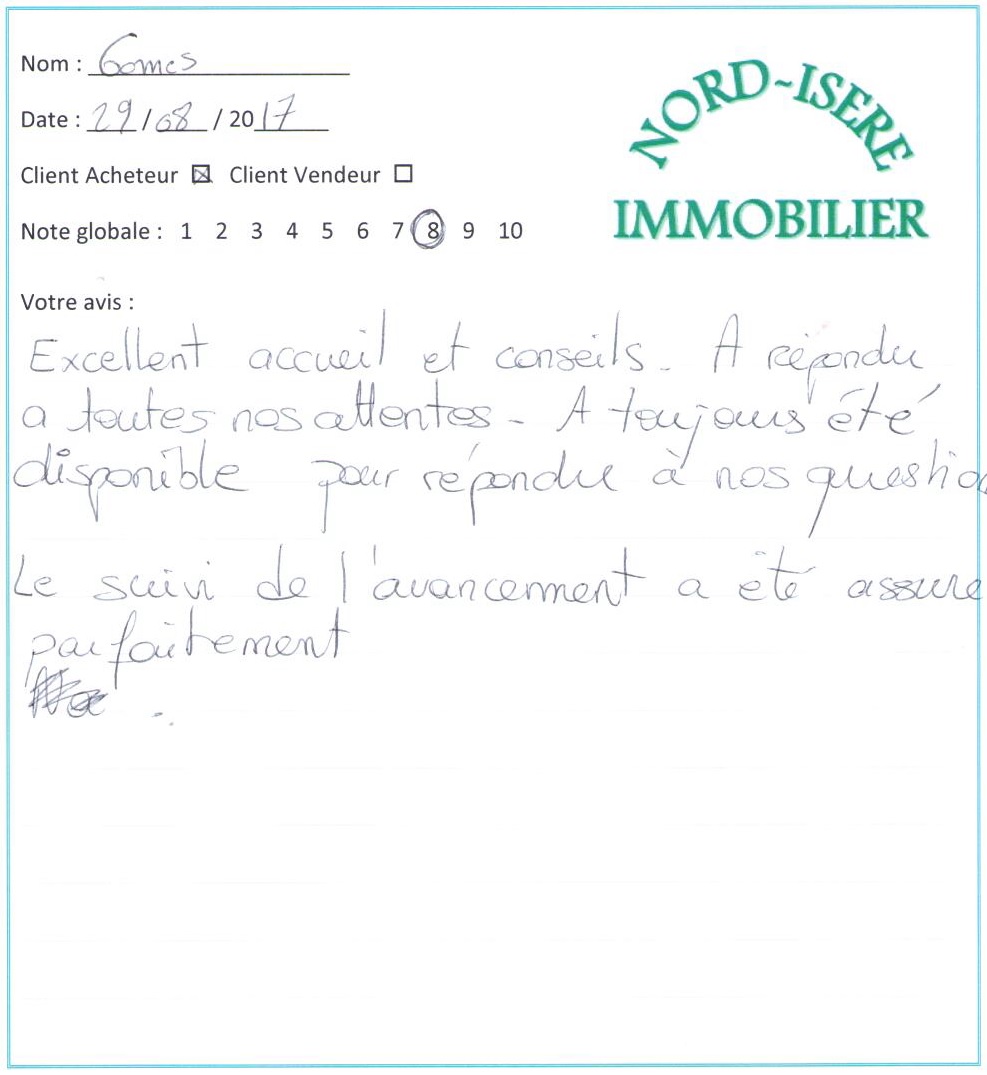 Nom : Gomes
NORD-ISERE
Date : 29/08/2017
Client Acheteur ☒ Client Vendeur ☐
IMMOBILIER
Note globale : 1 2 3 4 5 6 7 8 9 10
Votre avis :
Excellent accueil et conseils. A répondu
a toutes nos attentes - A toujours été
disponible pour répondu à nos questio
Le suivi de l'avancement a été assure
parfaitement